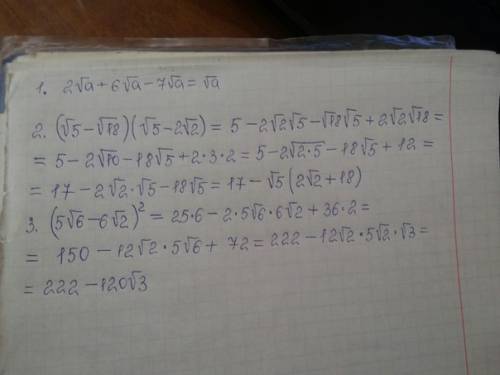 1. 2√a + 6√a - 7√a = √a
2. (√5 - √18)(√5 - 2√2) = 5 - 2√2√5 - √18√5 + 2√2√18 =
= 5 - 2√10 - 18√5 + 2·3·2 = 5 - 2√2·5 - 18√5 + 12 =
= 17 - 2√2·√5 - 18√5 = 17 - √5(2√2 + 18)
3. (5√6 - 6√2)² = 25·6 - 2·5√6·6√2 + 36·2 =
= 150 - 12√2·5√6 + 72 = 222 - 12√2·5√2·√3 =
= 222 - 120√3